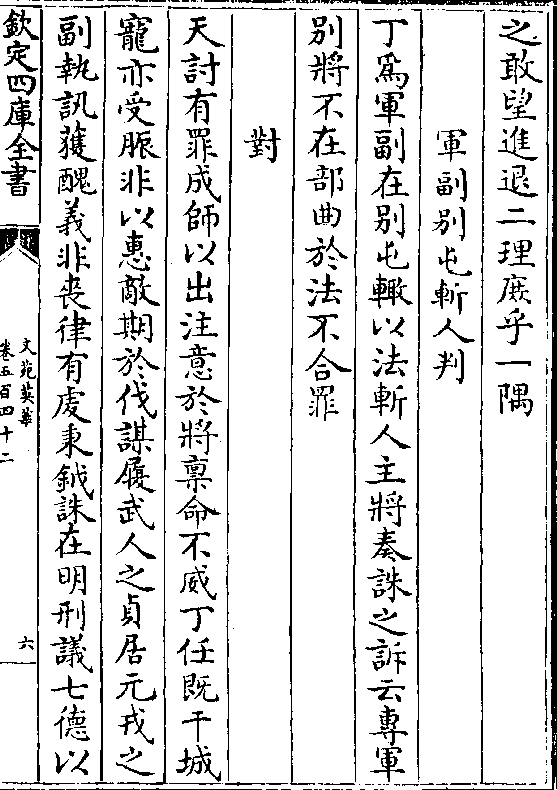 之敢望進退二理庶乎一隅
軍副别屯斬人判
丁為軍副在别屯轍以法斬人主將奏誅之訴云專軍
别將不在部曲於法不合罪
對
天討有罪成師以出注意於將稟命不威丁任既干城
寵亦受脤非以惠敵期於伐謀履武人之貞居元戎之
副執訊獲醜義非喪律有虔秉鉞誅在明刑議七德以
欽定四庫全書
文苑英華
卷五百四十二
六